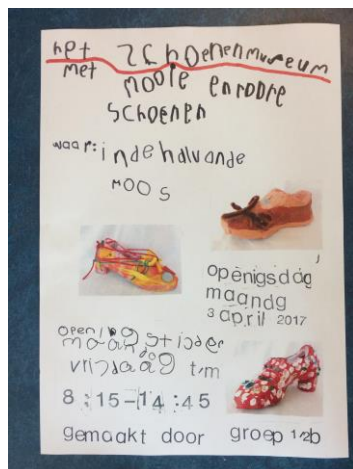 het schoenenmuseum
met mooie en rodre
schoenen
waar: in de hal vande
roos
openigsdag
maandg
3 april 2017
opening stijder
maandag
vrijdaag t/m
8:15-14:45
gemaakt door groep 1/2b